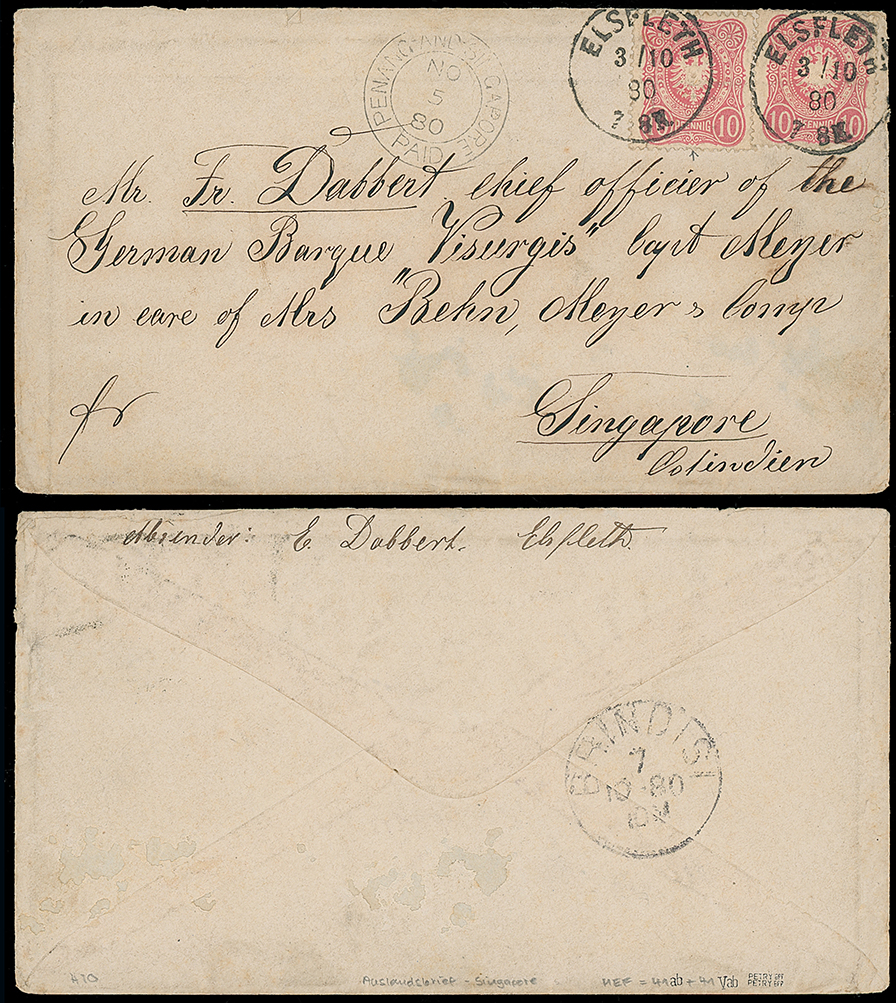 ELSFLETH
3/10
80
7-8N.
ELSFLETH
3/10
80
7-8N.
PFENNIG 10
10 PFENNIG 10
PENANG AND SINGAPORE
NO
5
80
PAID
Mr. Fr. Dabbert, chief officier of the
German Barque "Visurgis" Capt Meyer
in care of Mrs "Behn, Meyer & Comp
fr
Singapore
Ostindien
Absender: E. Dabbert. Elsfleth.
BRINDISI
7
10-80
10M
A70
Auslandsbrief - Singapore
MEF = 41ab + 41Vab
PETRY BPP
PETRY BPP